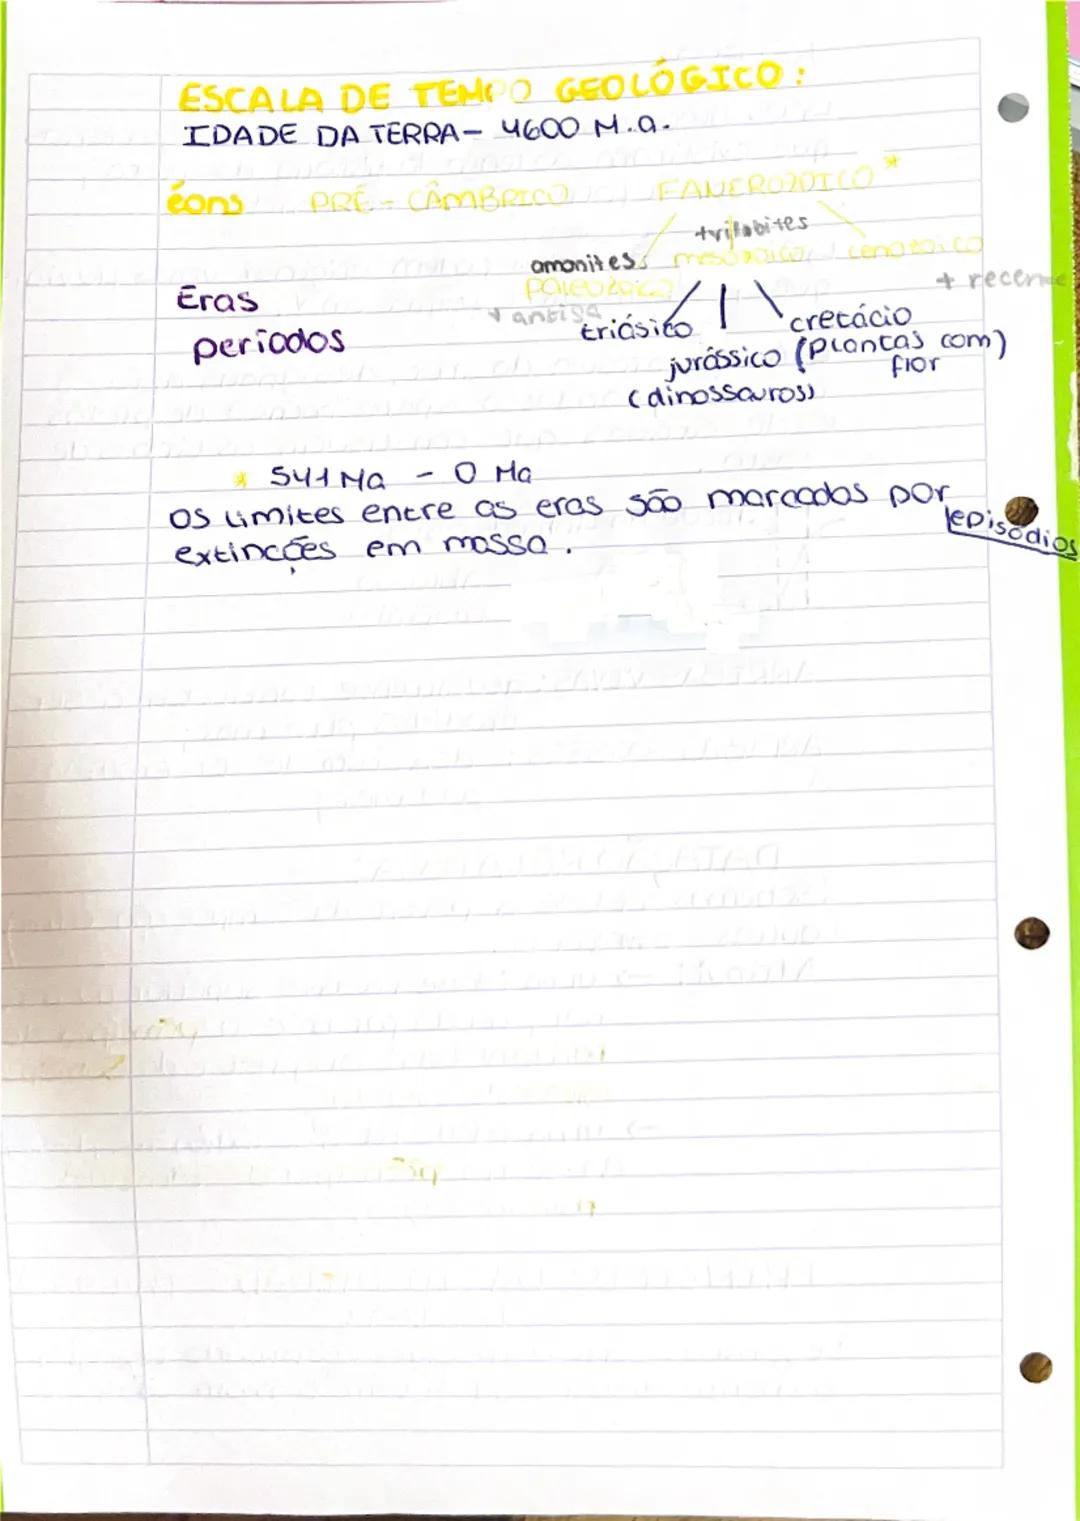 ESCALA DE TEMPO GEOLÓGICO:
IDADE DA TERRA- 4600 M.a.
éons PRÉ-CÂMBRICO FANEROZOICO *
trilobites
amonites mesozoico cenozoico
Eras Paleozoico + recente
+ antiga
períodos triásico cretácio
jurássico (plantas com)
flor
(dinossauros)
* 541 Ma - 0 Ma
Os limites entre as eras são marcados por episódios
extincções em massa.